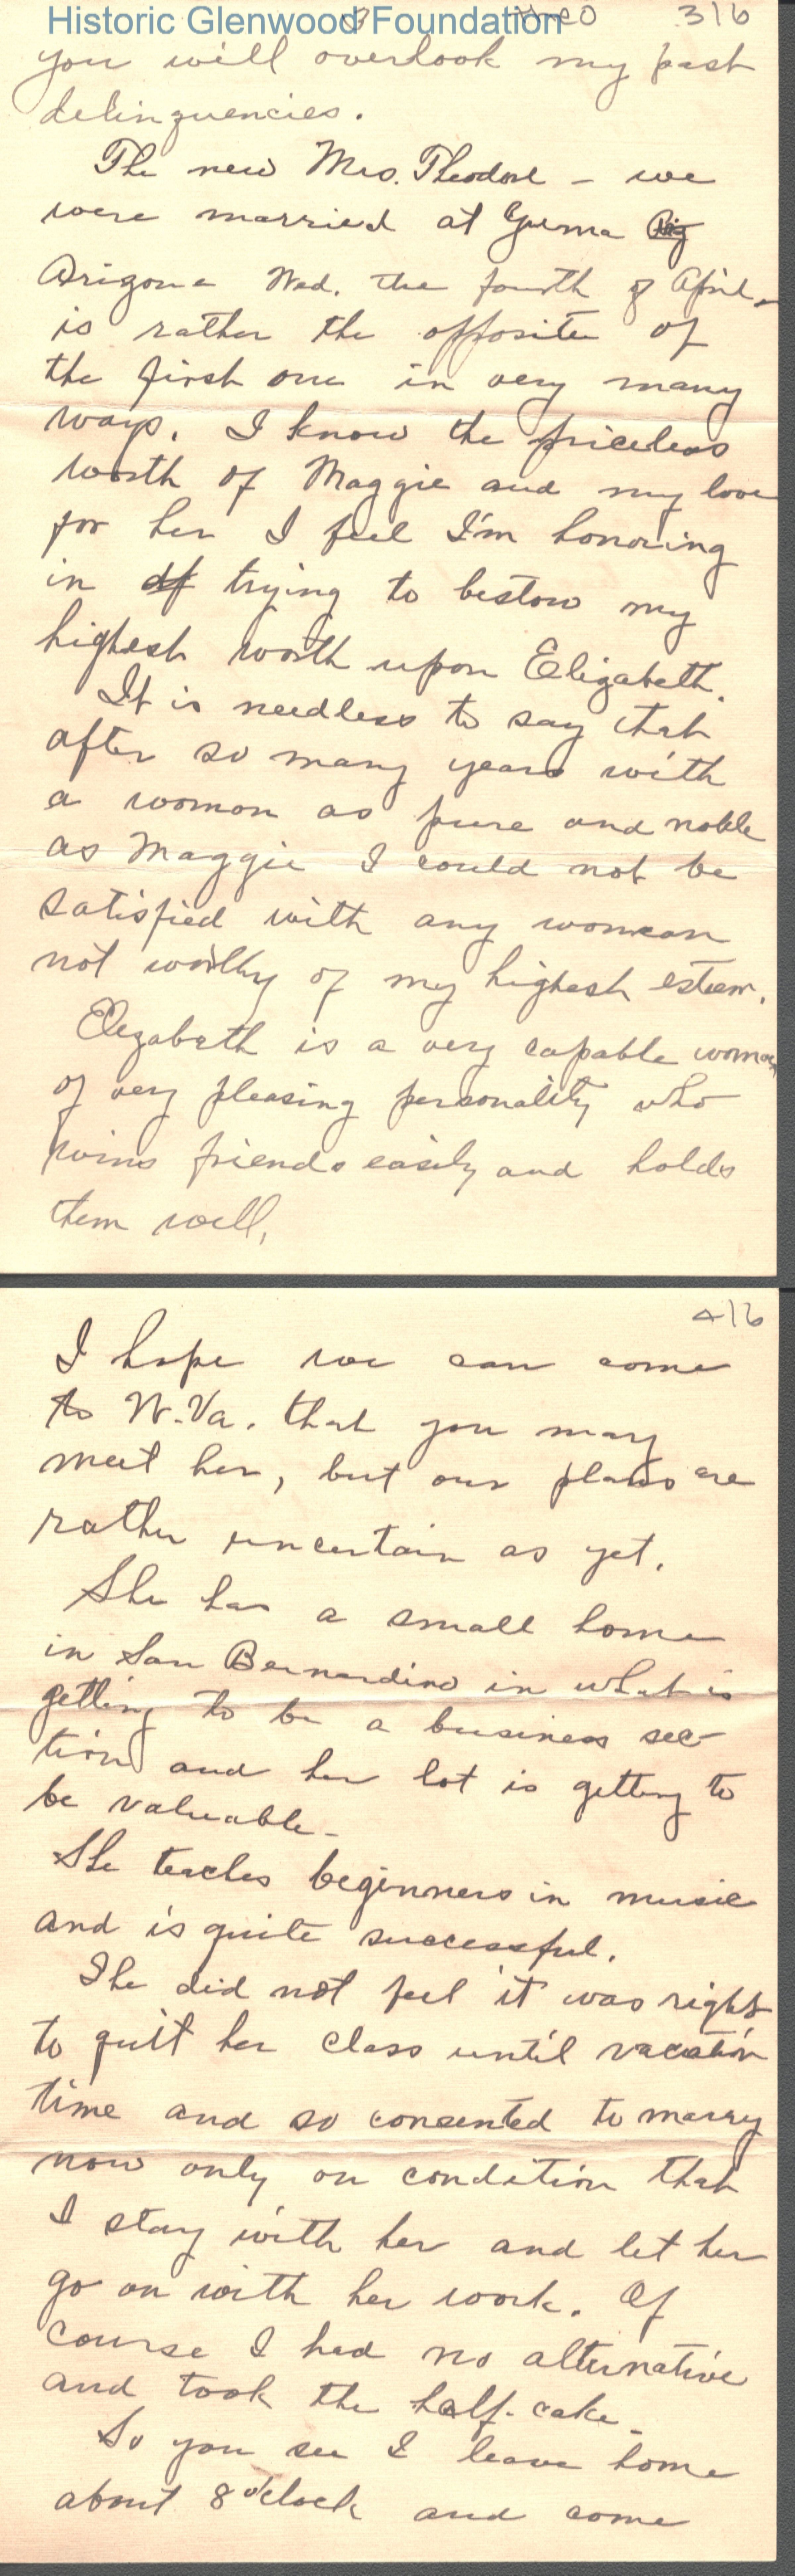 Historic Glenwood Foundation
316
you will overlook my past
delinquencies.
The new Mrs. Theodore - we
were married at Yuma
Arizona Wed. the fourth of April,
is rather the opposite of
the first one in very many
ways. I know the priceless
worth of Maggie and my love
for her I feel I'm honoring
in trying to bestow my
highest worth upon Elizabeth.
It is needless to say that
after so many years with
a woman as pure and noble
as Maggie I could not be
satisfied with any woman
not worthy of my highest esteem.
Elizabeth is a very capable woman
of very pleasing personality who
wins friends easily and holds
them well.
416
I hope we can come
to W.Va. that you may
meet her, but our plans are
rather uncertain as yet.
She has a small home
in San Bernardino in what is
getting to be a business sec-
tion and her lot is getting to
be valuable-
She teaches beginners in music
and is quite successful.
She did not feel it was right
to quit her class until vacation
time and so consented to marry
now only on condition that
I stay with her and let her
go on with her work. Of
course I had no alternative
and took the half-cake-
So you see I leave home
about 8 o'clock and come